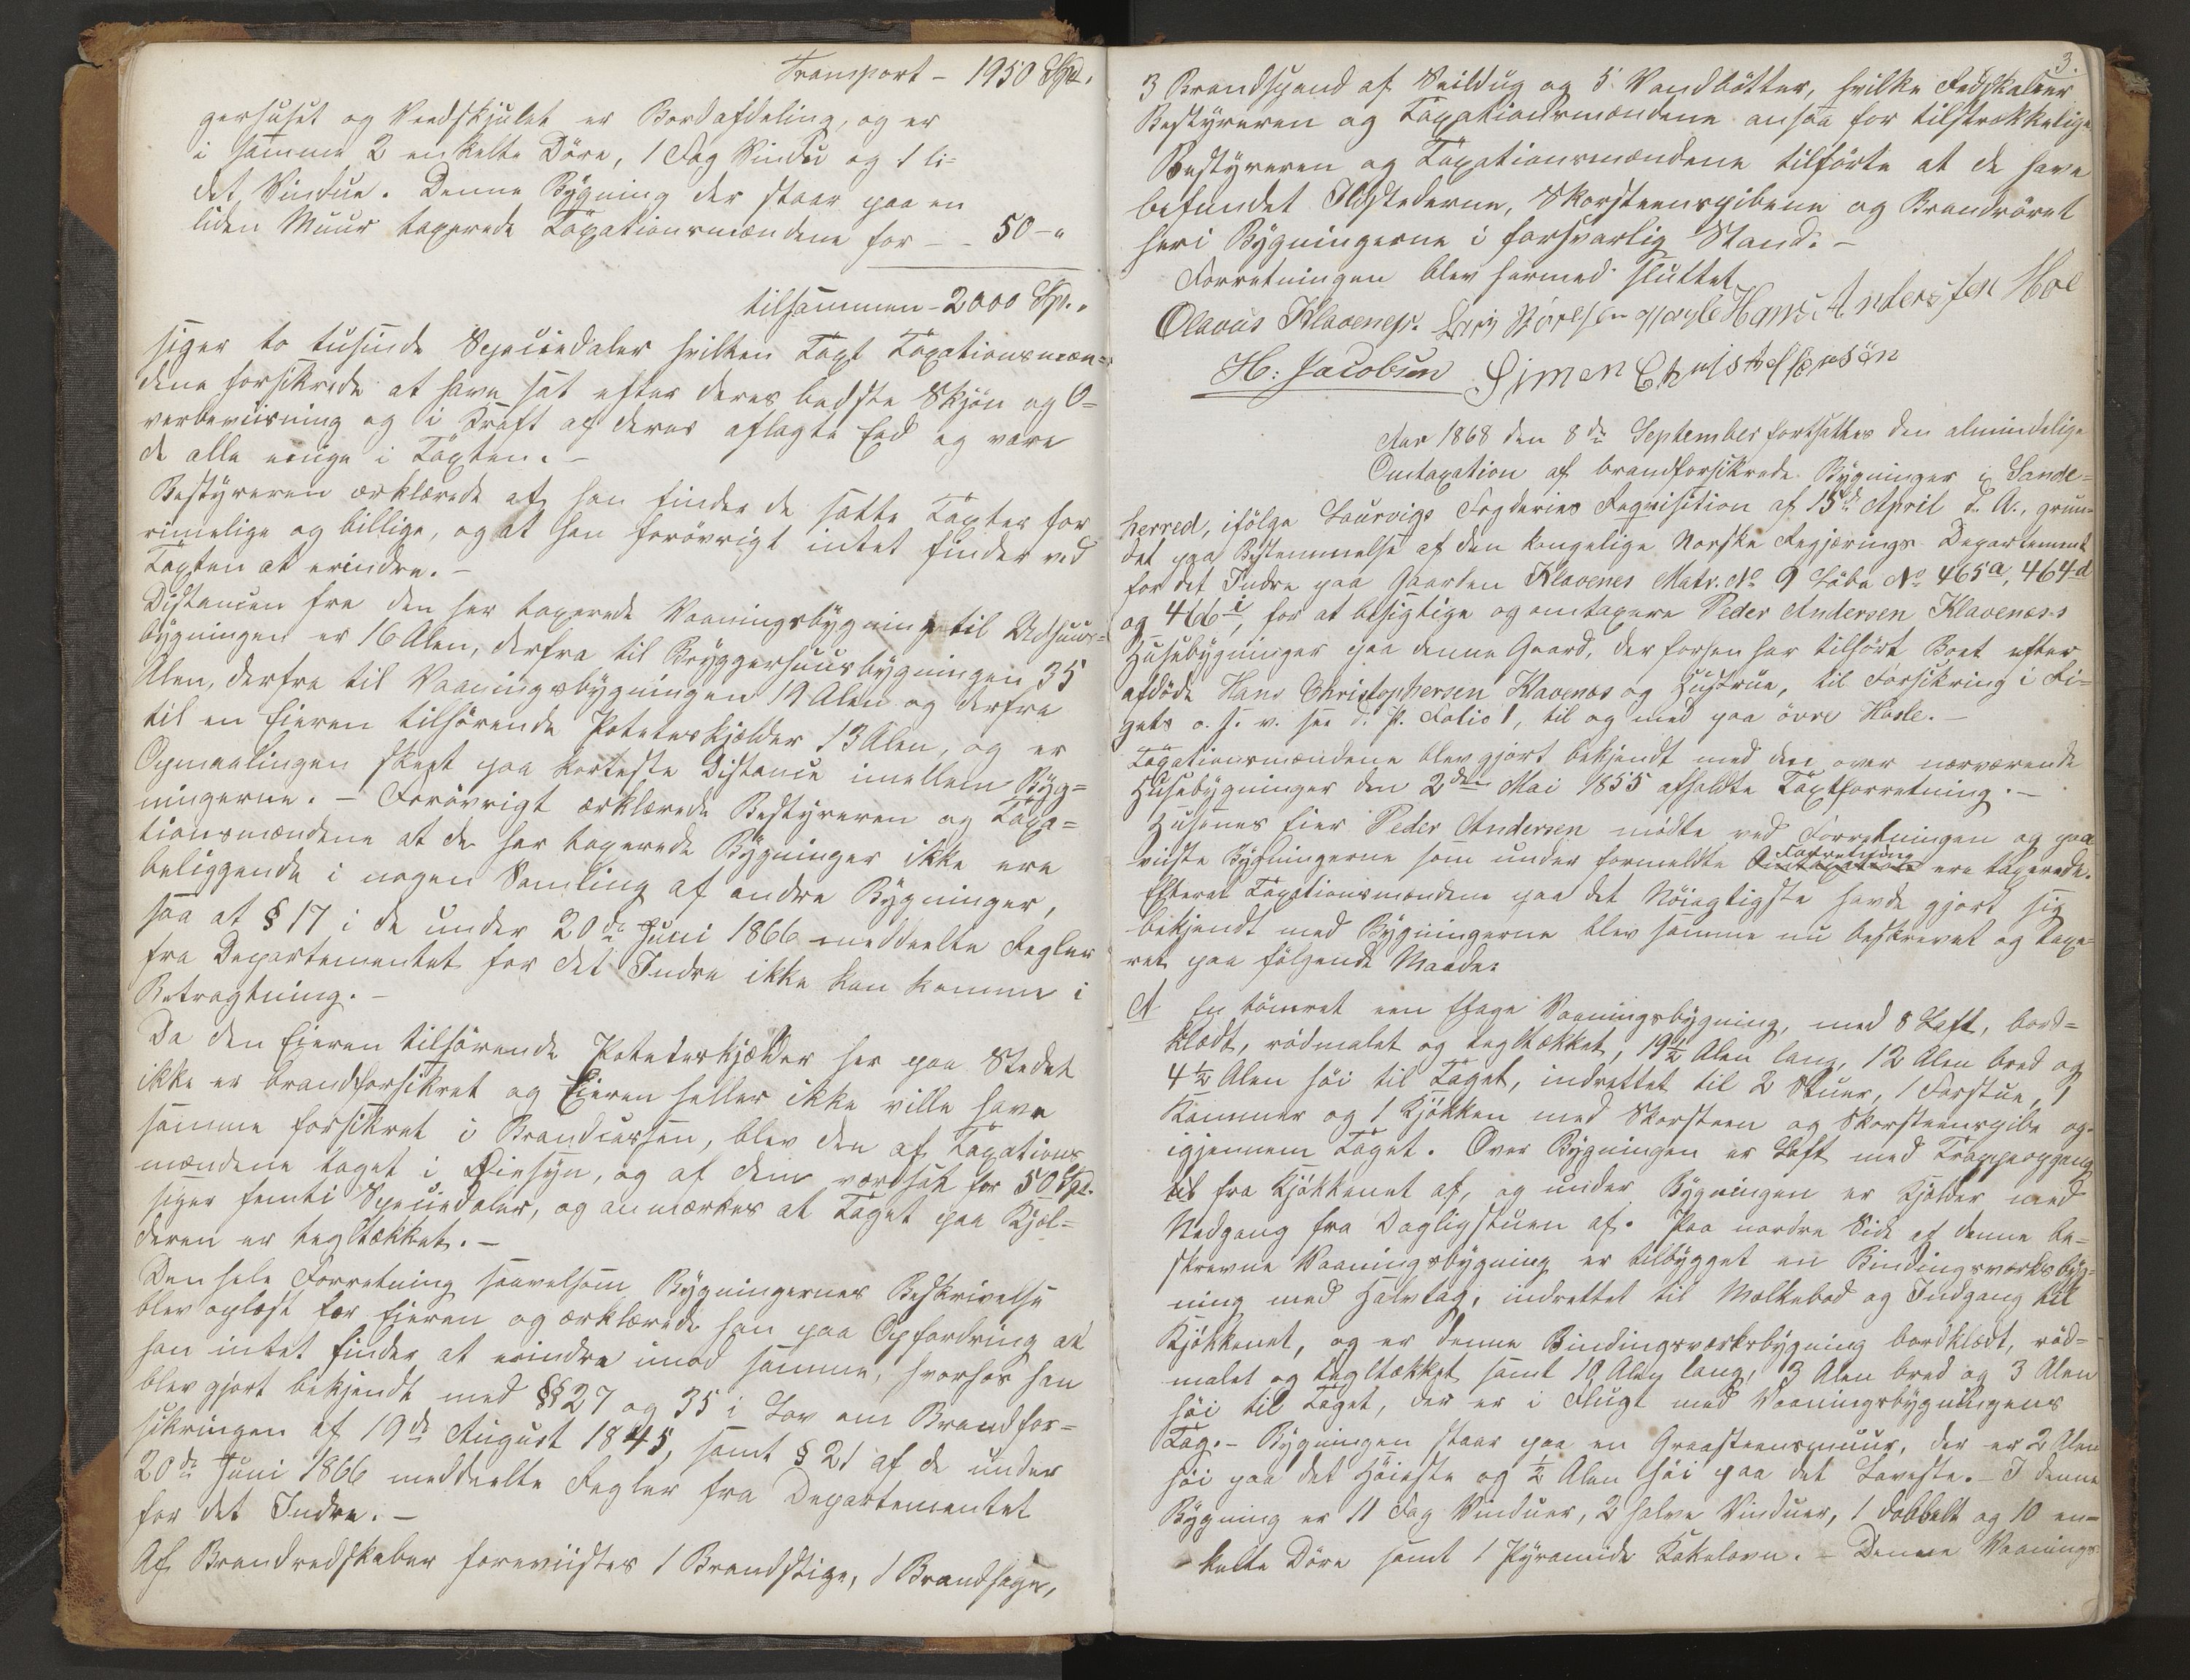 Transport - 1950 Spd.
gerhuset og Vedskjulet er Bordafdeling, og er
i samme 2 enkelte Döre, 1 Fag Vindu og 1 li-
det Vindue. Denne Bygning der staar paa en
liden Muur taxerede Taxationsmændene for - - 50 - "
tilsammen - 2000 Spd. "
siger to tusinde Speciedaler hvilken Taxt Taxationsmæn-
dene forsikrede at have sat efter deres bedste Skjön og O-
verbeviisning og i Kraft af deres aflagte Eed og være
de alle enige i Taxten. -
Bestyreren erklærede at han finder de satte Taxter for
rimelige og billige, og at han forövrigt intet finder ved
Taxten at erindre. -
Distancen fra den her taxerede Vaaningsbygning til Udhuus-
bygningen er 16 Alen, derfra til Bryggerhuusbygningen 35
Alen, derfra til Vaaningsbygningen 19 Alen og derfra
til en Eieren tilhörende Poteteskjælder 13 Alen, og er
Opmaalingen skeet paa korteste Distance imellem Byg-
ningerne. - Forövrigt erklærede Bestyreren og Taxa-
tionsmændene at de her taxerede Bygninger ikke ere
beliggende i nogen Samling af andre Bygninger,
saa at § 17 i de under 20de Juni 1866 meddeelte Regler
fra Departementet for det Indre ikke kan komme i
Betragtning. -
Da den Eieren tilhörende Poteteskjælder her paa Stedet
ikke er brandforsikret og Eieren heller ikke ville have
samme forsikret i Brandcassen, blev den af Taxations
mændene taget i Øiesyn, og af dem værdsat for 50 Spd.
siger femti Speciedaler, og anmærkes at Taget paa Kjæl-
deren er tegltækket. -
Den hele Forretning saavelsom Bygningernes Beskrivelse
blev oplæst for Eieren og erklærede han paa Opfordring at
han intet finder at erindre imod samme, hvorhos han
blev gjort bekjendt med §§ 27 og 35 i Lov om Brandfor-
sikringen af 19de August 1845, samt § 21 af de under
20de Juni 1866 meddeelte Regler fra Departementet
for det Indre. -
Af Brandredskaber foreviistes 1 Brandstige, 1 Brandhage,
3.
3 Brandspand af Seildug og 5 Vandbötter, hvilke Redskaber
Bestyreren og Taxationsmændene ansaa for tilstrækkelige
Bestyreren og Taxationsmændene tilförte at de have
befundet Ildstederne, Skorsteenspiberne og Brandröret
her i Bygningerne i forsvarlig Stand. -
Forretningen blev hermed sluttet
Olavus Klavenes. Hans Andersen Moe
H: Jacobsen Simen Christoffersön
Aar 1868 den 8de September fortsattes den almindelige
Omtaxation af brandforsikrede Bygninger i Sande-
herred, ifölge Laurvigs Fogderies Reqvisition af 15de April d. A., grun-
det paa Bestemmelse af den kongelige Norske Regjerings Departement
for det Indre paa Gaarden Klavenes Matr. No 9 Löbe No 465a, 464d
og 466i, for at besigtige og omtaxere Peder Andersen Klavenæs's
Husebygninger paa denne Gaard, der forhen har tilhört Boet efter
afdöde Hans Christophersen Klavenæs og Hustrue, til Forsikring i Ri-
gets o. s. v. see d. P. Folio 1, til og med paa övre Hasle. -
Taxationsmændene blev gjort bekjendt med den over nærværende
Husebygninger den 2den Mai 1855 afholdte Taxtforretning. -
Husenes Eier Peder Andersen mödte ved Forretningen og paa
viiste Bygningerne som under formeldte Forretning ere taxerede.
Efterat Taxationsmændene paa det Nöiagtigste havde gjort sig
bekjendt med Bygningerne blev samme nu beskrevet og taxe-
ret paa fölgende Maade:
A En tömret een Etage Vaaningsbygning, med 8 Laft, bord-
klædt, rödmalet og tegltækket, 19 1/2 Alen lang, 12 Alen bred og
4 1/2 Alen höi til Taget, indrettet til 2 Stuer, 1 Forstue, 1
Kammer og 1 Kjökken med Skorsteen og Skorsteenspibe op
igjennem Taget. Over Bygningen er Loft med Trappeopgang
til fra Kjökkenet af, og under Bygningen er Kjelder med
Nedgang fra Dagligstuen af. Paa nordre Side af denne be-
skrevne Vaaningsbygning er tilbygget en Bindingsværksbyg-
ning med Halvtag, indrettet til Melkebod og Indgang til
Kjökkenet, og er denne Bindingsværksbygning bordklædt, röd-
malet og tegltækket samt 10 Alen lang, 3 Alen bred og 3 Alen
höi til Taget, der er i Flugt med Vaaningsbygningens
Tag. - Bygningen staar paa en Graasteensmuur, der er 2 Alen
höi paa det Höieste og 1/2 Alen höi paa det Laveste. - I denne
Bygning er 11 Fag Vinduer, 2 halve Vinduer, 1 dobbelt og 10 en-
kelte Döre samt 1 Pyramide Kakelovn. - Denne Vaanings